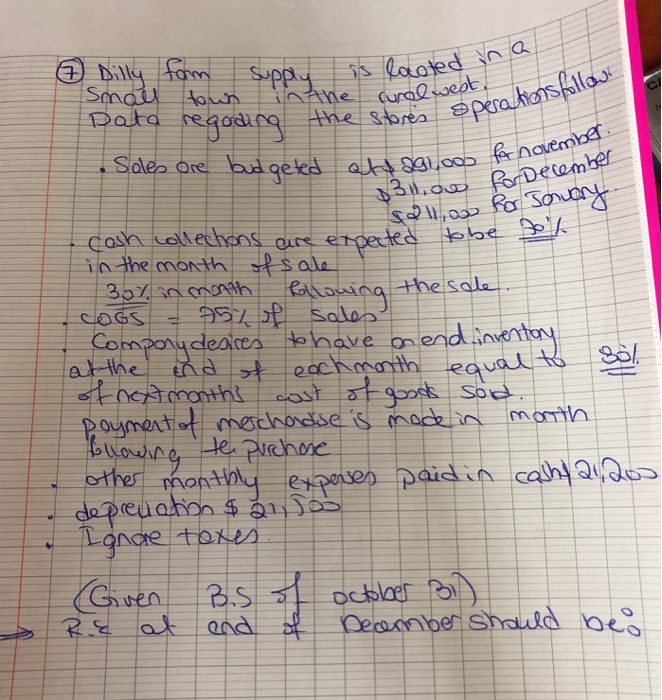 ⑦ Dilly farm supply is located in a
small town in the rural west.
Data regarding the stores operations follow:
• Sales are budgeted at $291,000 for november.
$311,000 for December
$211,000 for January.
• cash collections are expected to be 70%
in the month of sale
30% in month following the sale.
• COGS = 75% of sales
• Company desires to have an end inventory
at the end of each month equal to 30%
of next months cost of goods sold.
payment of merchandise is made in month
following the purchase
• other monthly expenses paid in cash 21,200
• depreciation $ 21,500
• Ignore taxes.
(Given B.S of october 31)
→ R.E at end of December should be: